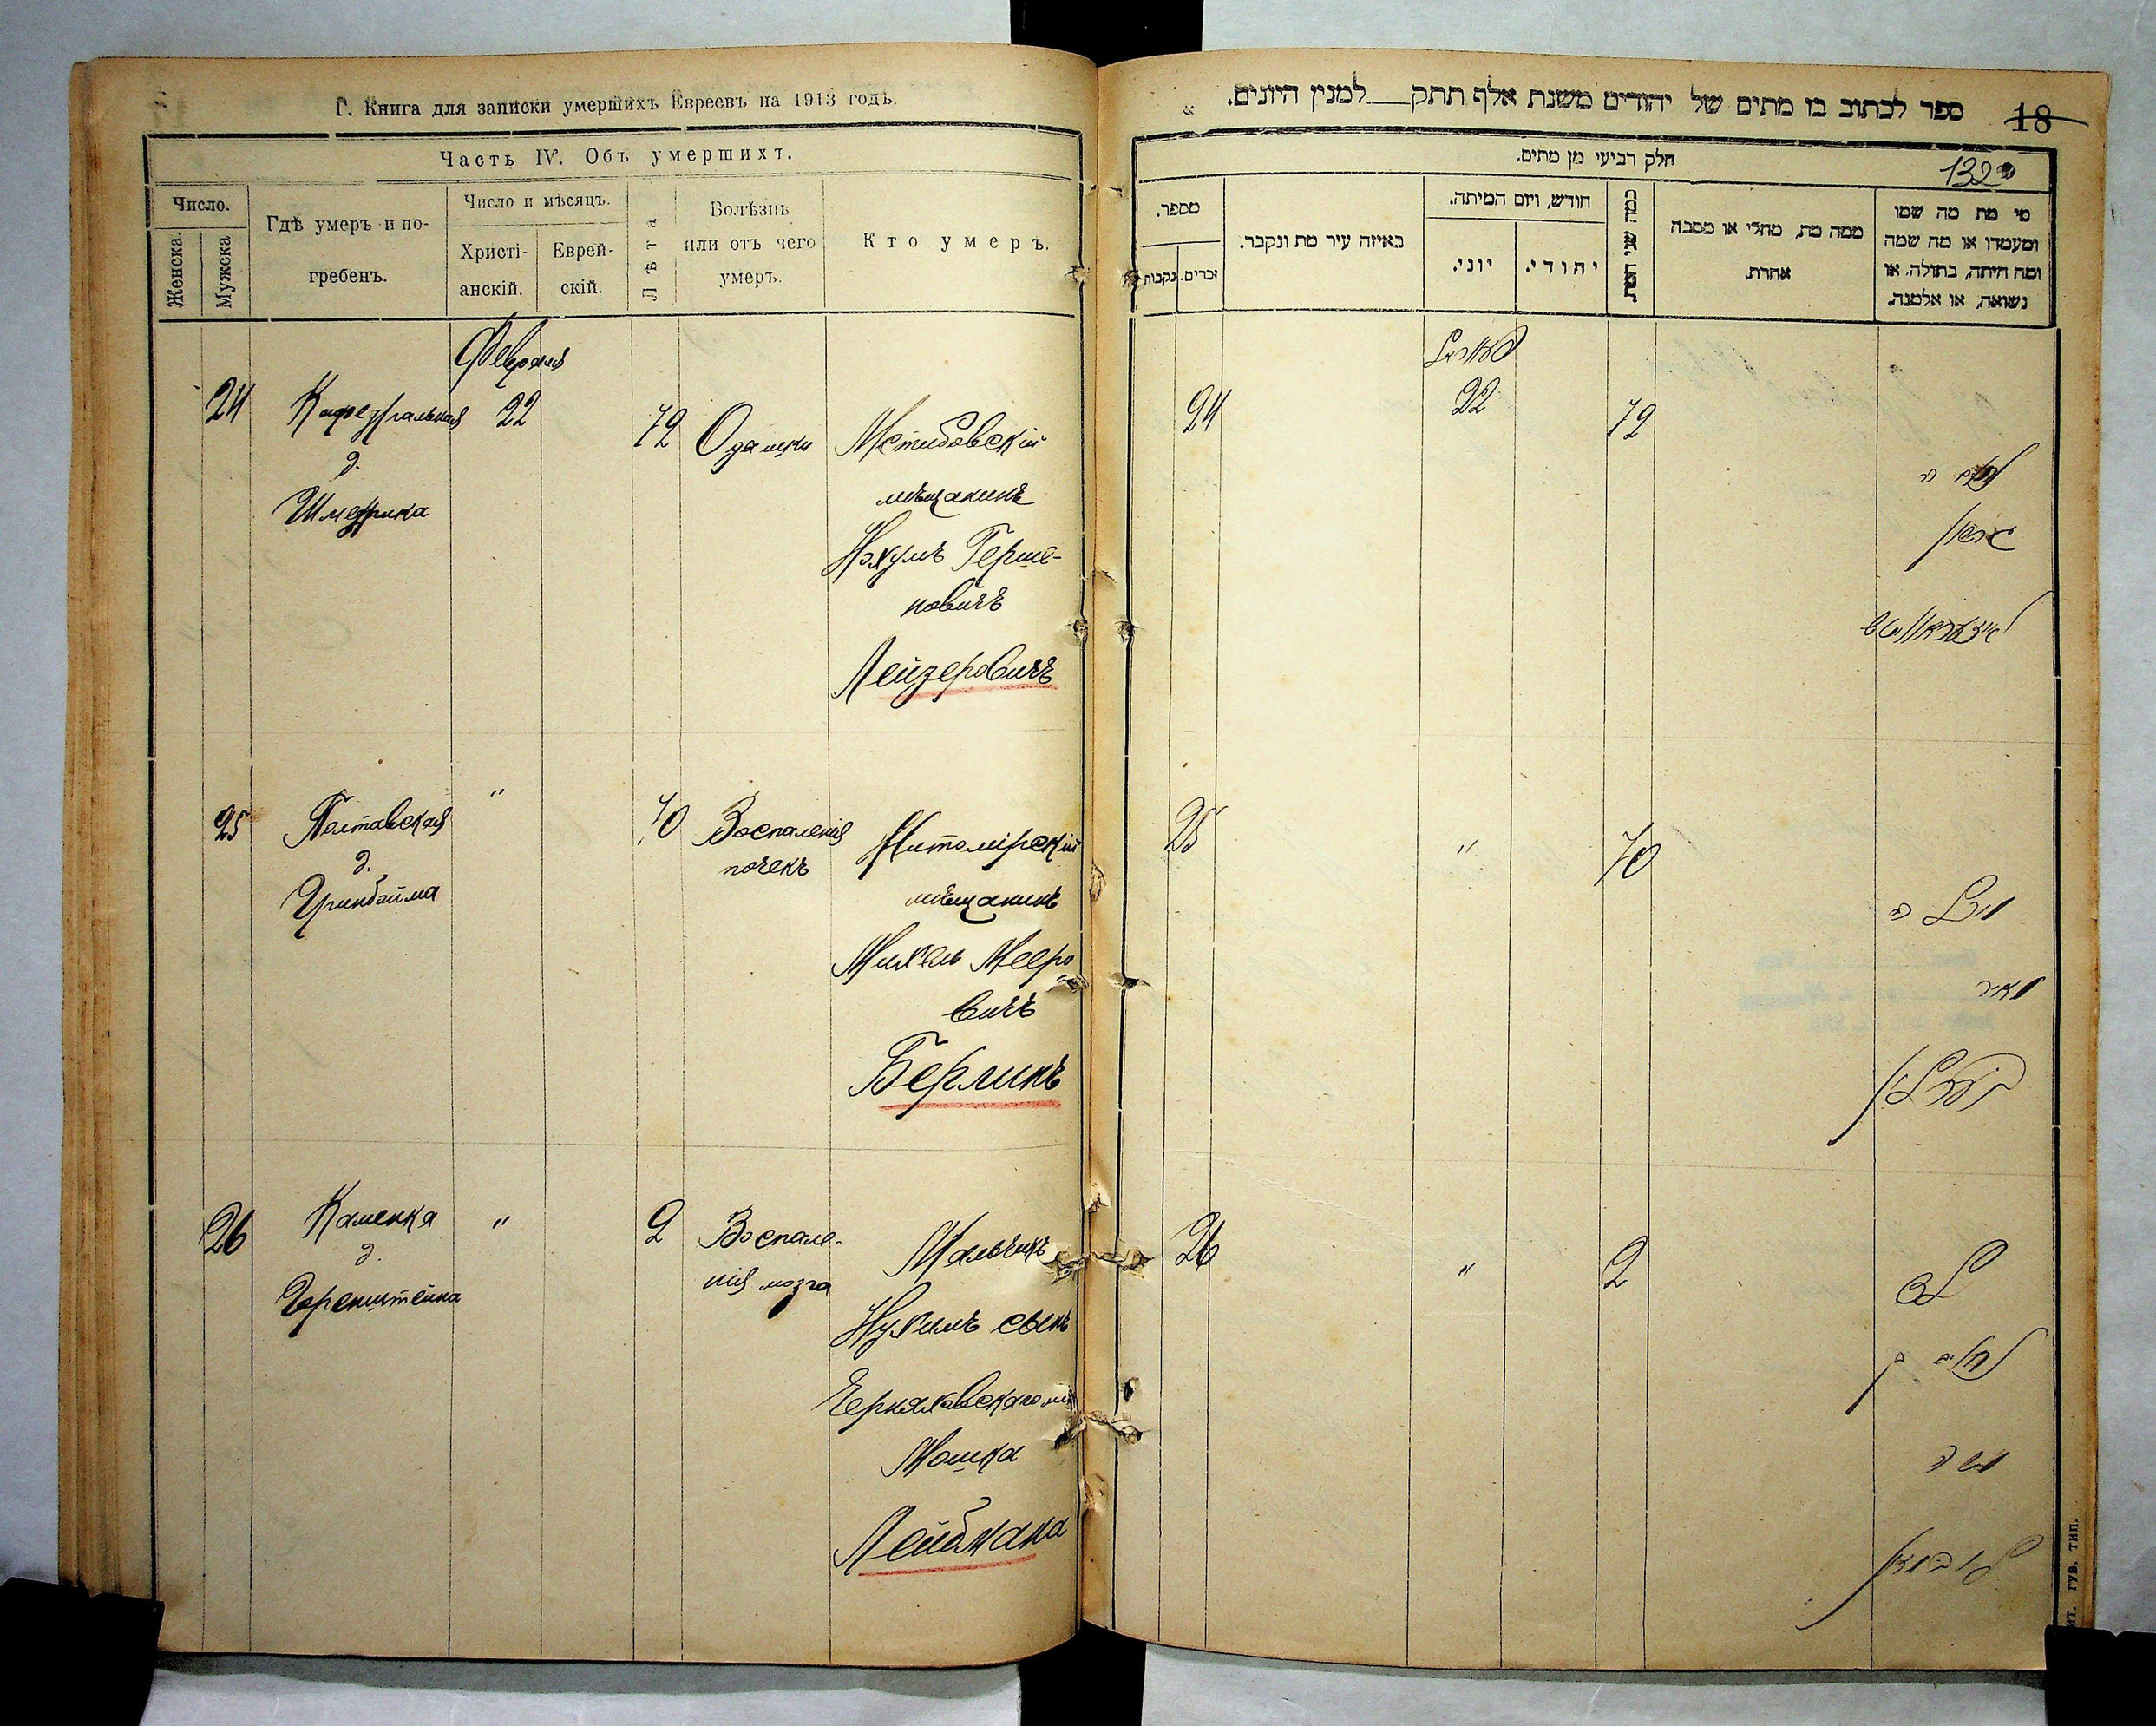 Г. Книга для записки умершихъ Евреевъ на 1913 годъ.
Часть IV. Объ умершихъ.
Число.
Женска.
Мужска
Гдѣ умеръ и по-
гребенъ.
Число и мѣсяцъ.
Христі-
анскій.
Еврей-
скій.
Лѣта
Болѣзнь
или отъ чего
умеръ.
Кто умеръ.
Февраля
24 Кафедральная 22 72 Одышки Мстибовскій
д. мѣщанинъ
Шмедрика
Нохумъ Герше-
новичъ
Лейзеровичъ
25 Полтавская " 70 Воспаленія Житомірскій
д. почекъ мѣщанинъ
Гринбойма
Михель Мееро
вичъ
Берлинъ
26 Каменка " 2 Воспале- Мальчикъ
д. нія мозга
Горенштейна
Нухимъ сынъ
Черняховскаго
Мошка
Лейбмана
ספר לכתוב בו מתים של יהודים משנת אלף תתק למנין היונים.
18
132
חלק רביעי מן מתים.
מספר.
זכרים.
נקבות
באיזה עיר מת ונקבר.
חודש, ויום המיתה.
יוני.
יהודי.
כמה שני המת.
ממה מת, מחלי או מסבה
אחרת.
מי מת מה שמו
ומעמדו או מה שמה
ומה היתה, בתולה, או
נשואה, או אלמנה.
24 22 72
25 " 70
מיכל
מאיר
בערלין
26 " 2
נחום
משה
לייבמאן
ит. губ. тип.